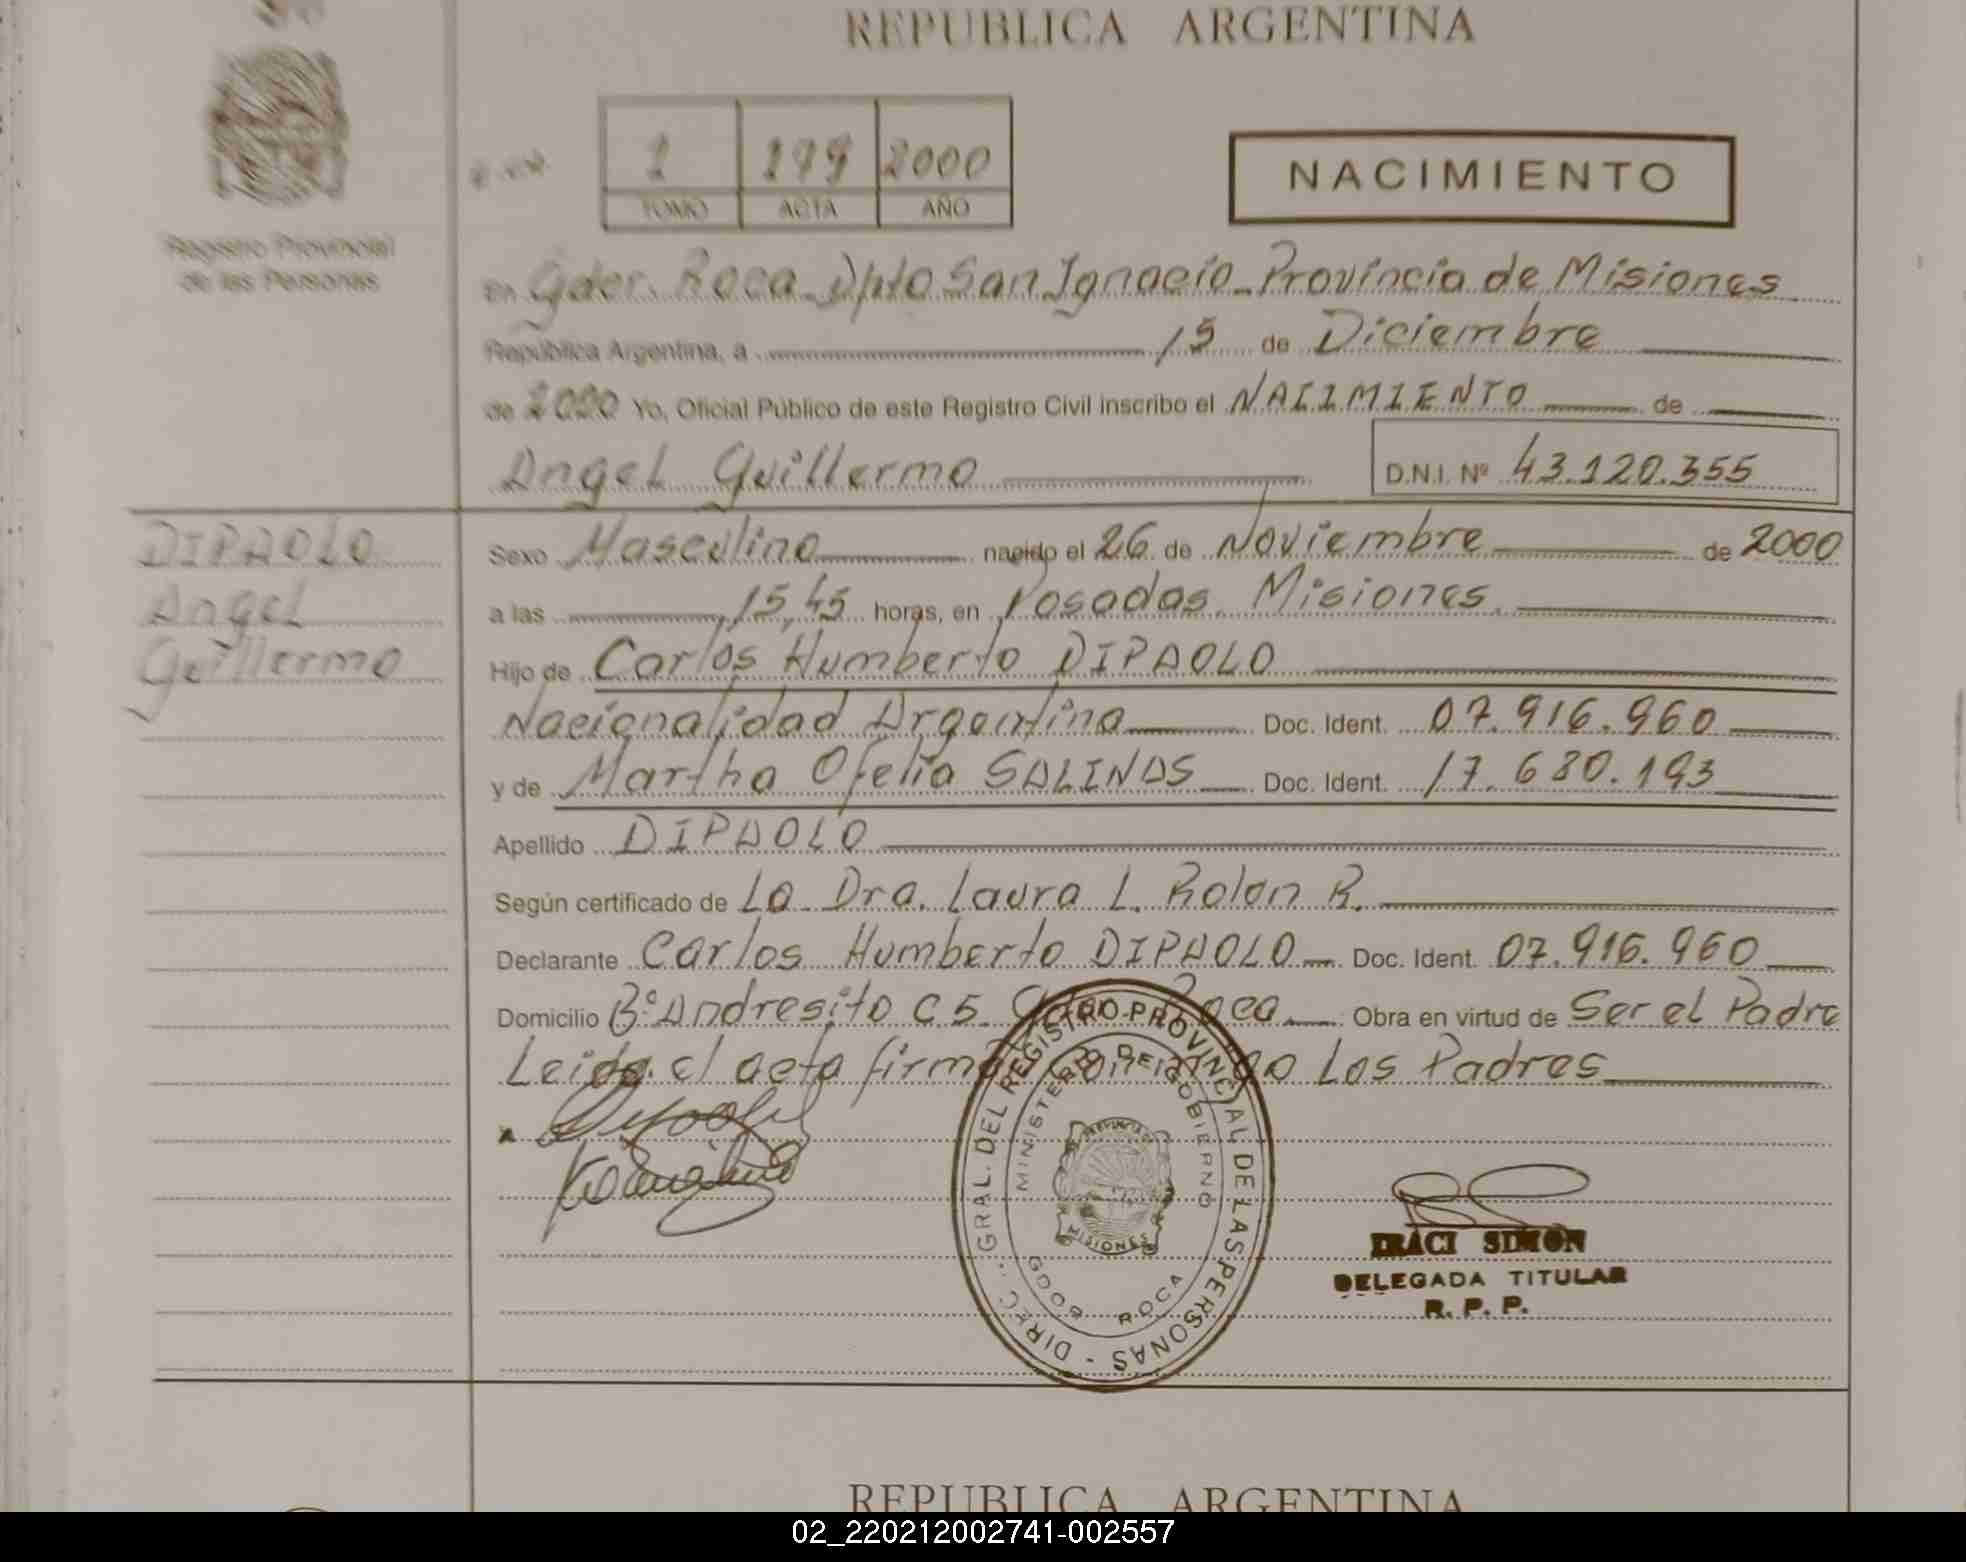 REPUBLICA ARGENTINA
2000
TOMO ACTA AÑO
NACIMIENTO
Registro Provincial
de las Personas
En Gder. Roca Dpto San Ignacio Provincia de Misiones
República Argentina, a 15 de Diciembre
de 2000 Yo, Oficial Público de este Registro Civil inscribo el NACIMIENTO de
Angel Guillermo D.N.I. Nº 43.120.355
DIPAOLO
Angel
Guillermo
Sexo Masculino nacido el 26 de Noviembre de 2000
a las 15,45 horas, en Posadas, Misiones.
Hijo de Carlos Humberto DIPAOLO
Nacionalidad Argentina Doc. Ident. 07.916.960
y de Martha Ofelia SALINAS Doc. Ident. 17.680.193
Apellido DIPAOLO
Según certificado de La Dra. Laura L. Rolon R.
Declarante Carlos Humberto DIPAOLO Doc. Ident. 07.916.960
Domicilio Bº Andresito C 5 Gder. Roca Obra en virtud de Ser el Padre
Leida el acta firman Los Padres
DIREC. GRAL. DEL REGISTRO PROVINCIAL DE LAS PERSONAS -
MINISTERIO DE GOBIERNO
PROVINCIA
MISIONES
GDOR. ROCA
IRACI SIMON
DELEGADA TITULAR
R. P. P.
REPUBLICA ARGENTINA
02_220212002741-002557